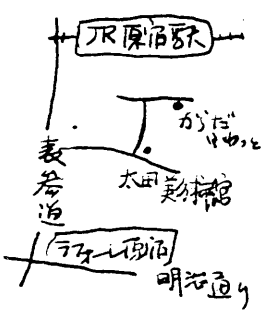 JR原宿駅
からだ
表参道
太田
美術館
ラフォーレ原宿
明治通り